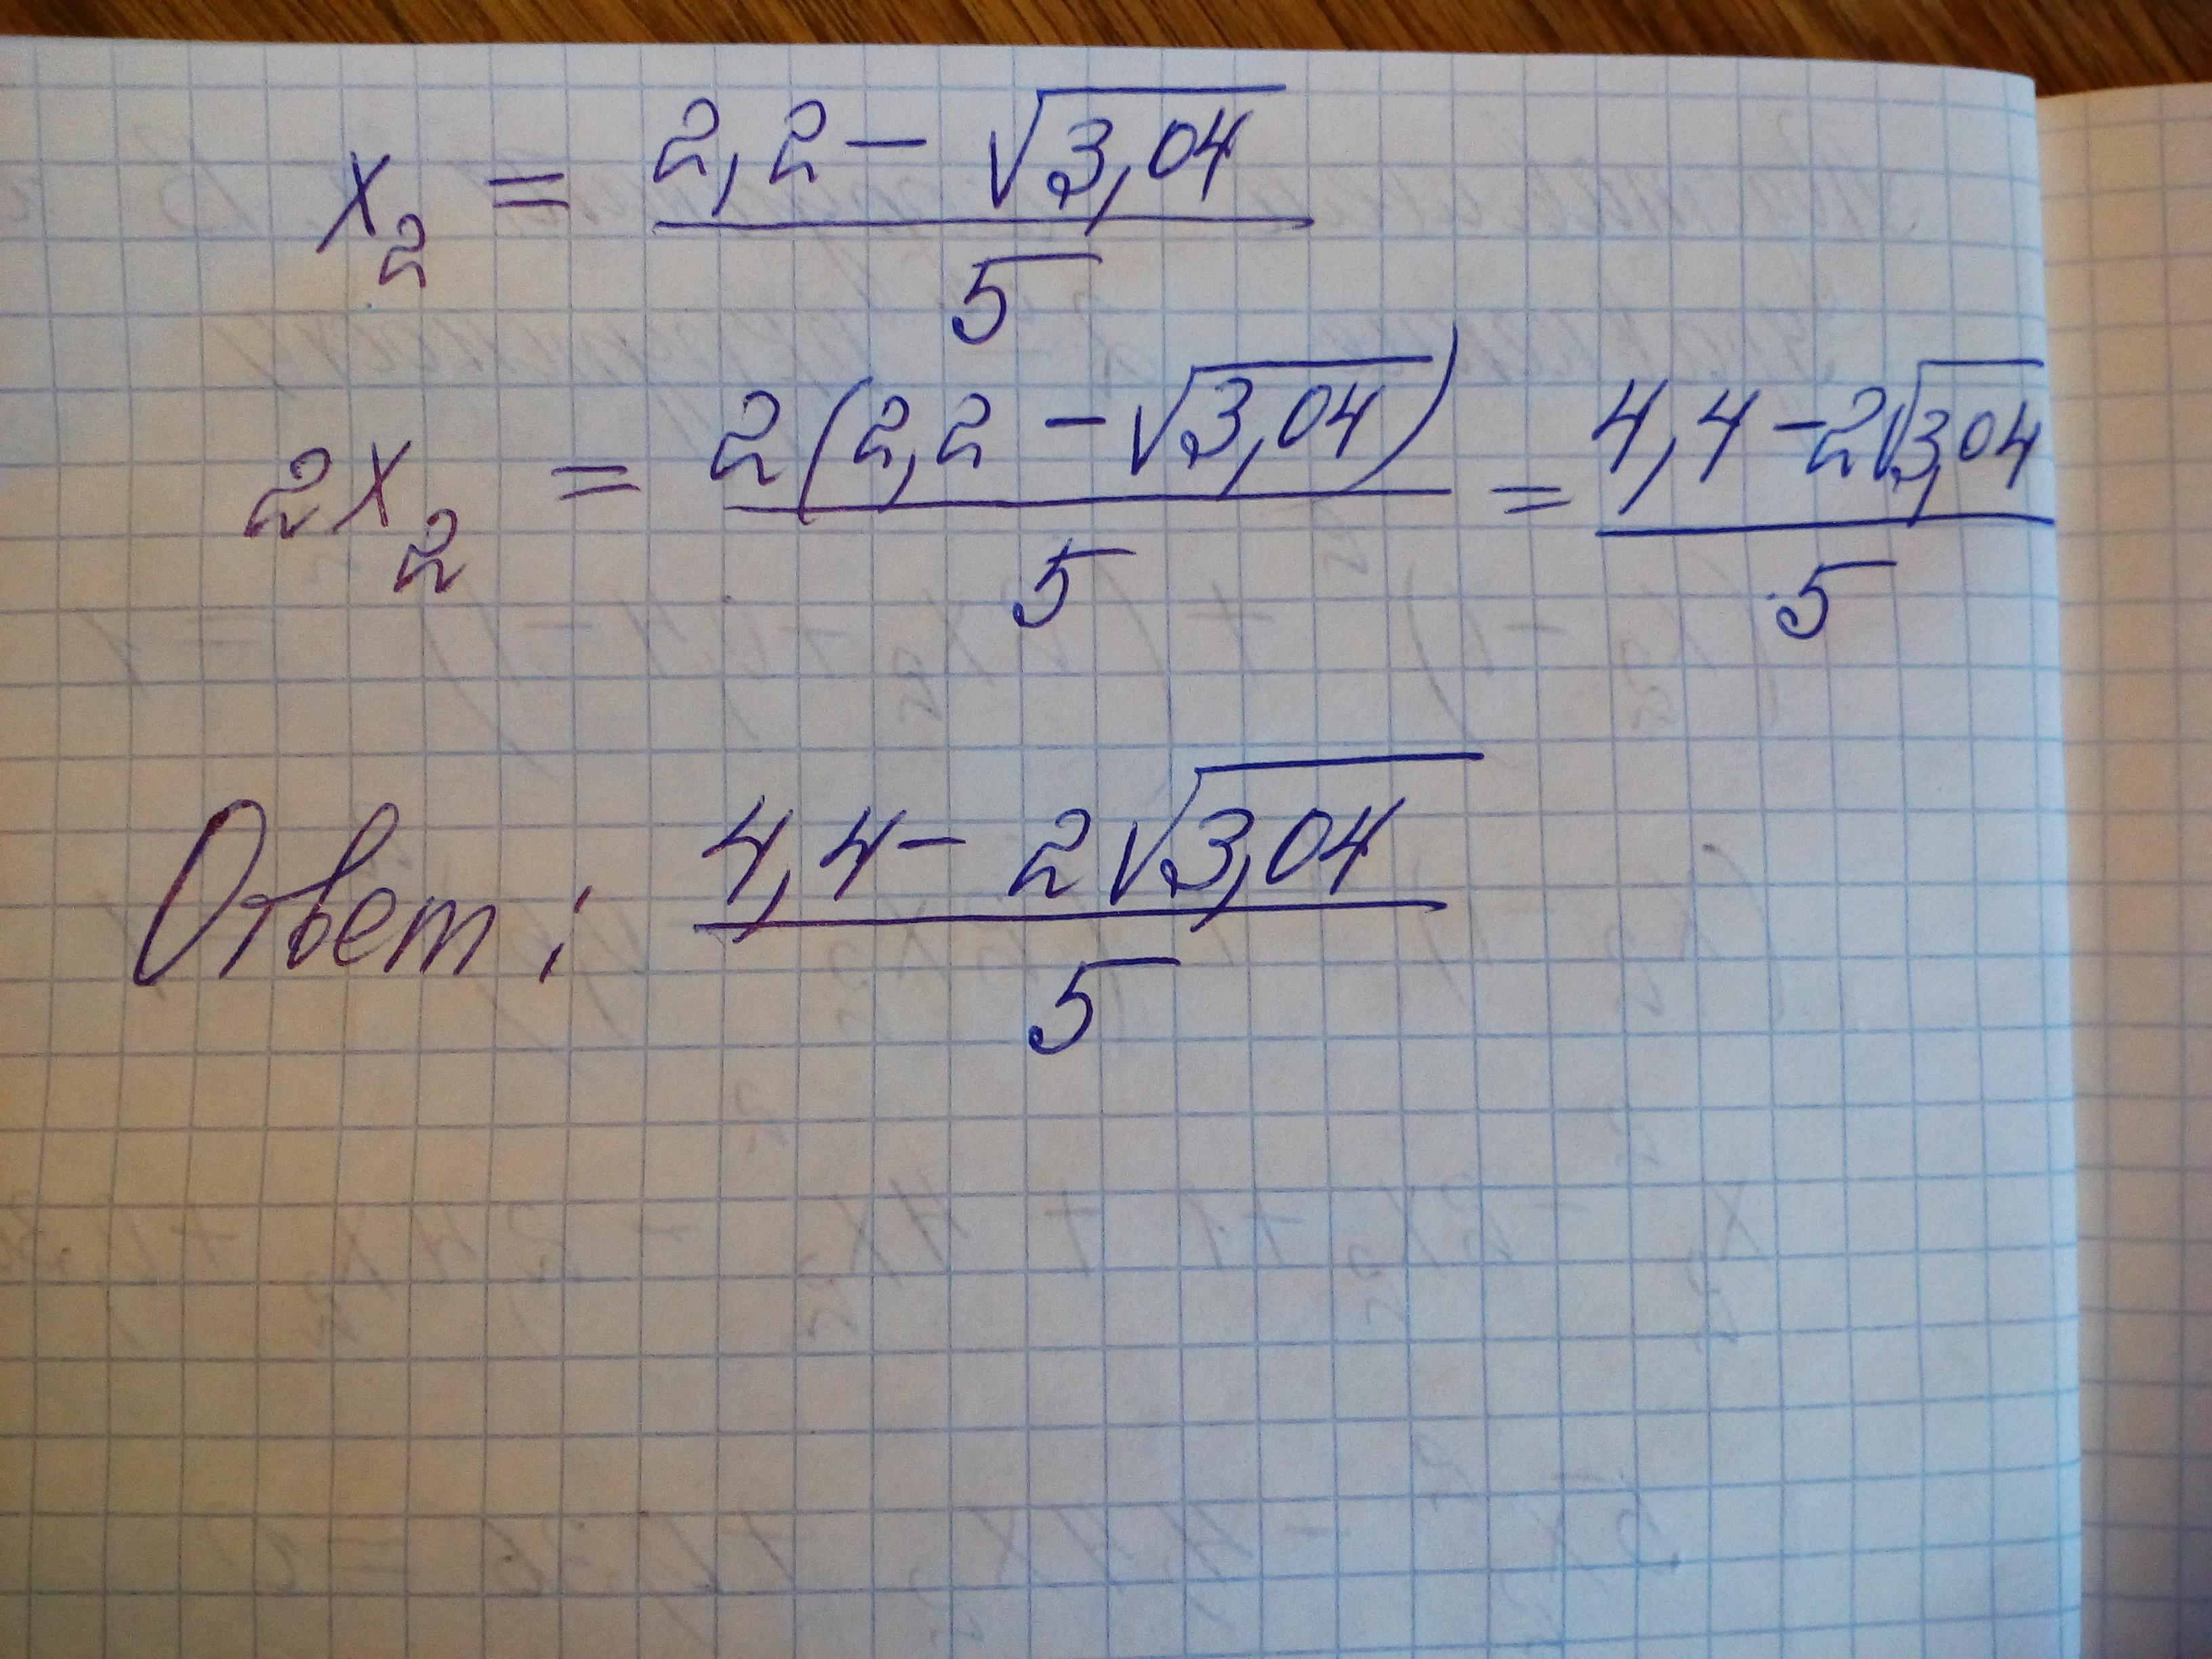 x₂ = (2,2 - √3,04) / 5
2x₂ = 2(2,2 - √3,04) / 5 = (4,4 - 2√3,04) / 5
Ответ: (4,4 - 2√3,04) / 5